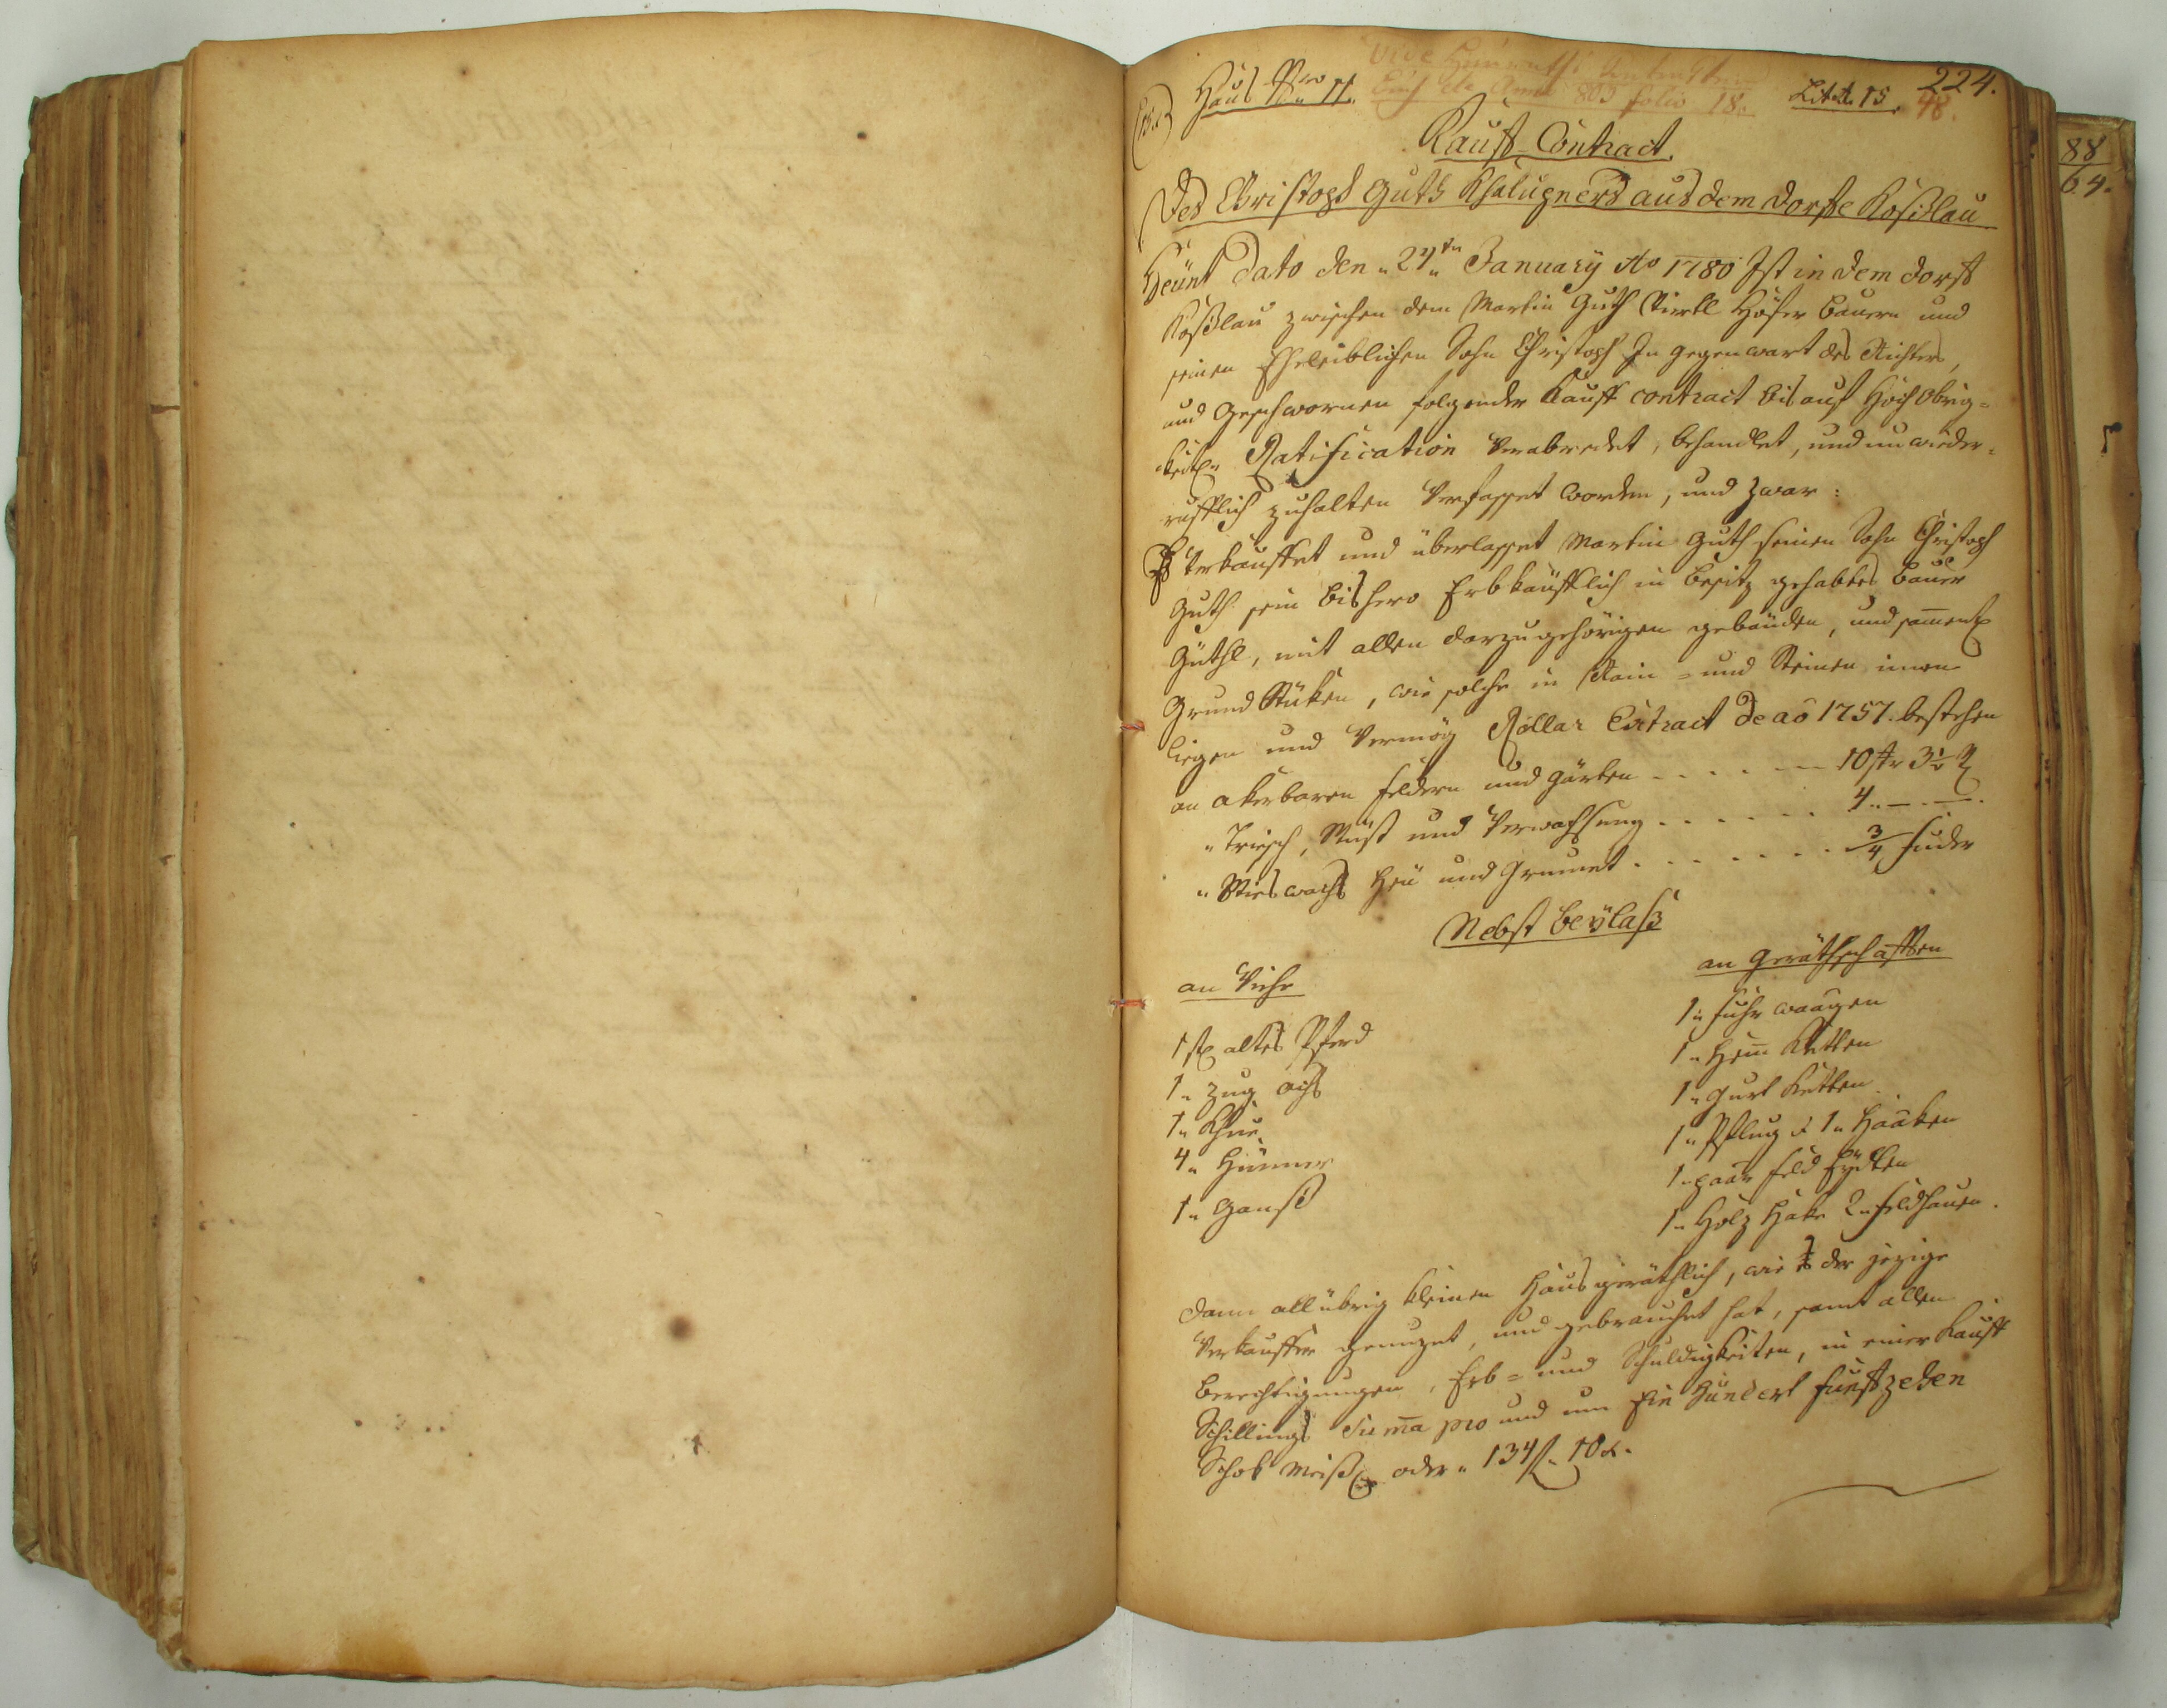 224.
Haus Nro 11.
Vide Heuraths Contracten
Buch de Anno 803 folio 18.
Lit. A. 15.
48.
Kauff-Contract.
Des Christoph Guth Chalupners aus dem Dorffe Koßislau
Heünt Dato den „27ten January Ao 1780 Ist in dem Dorff
Koßislau zwischen dem Martin Guth Viertl Höfer Bauern und
seinen Eheleiblichen Sohn Christoph In gegenwart des Richters,
und Geschwornen folgender Kauff contract bis auf Hoch Obrig=
keitl. Ratification Verabredet, behandlet, und unwieder=
rufflich zuhalten Verfasset worden, und zwar:
Es Verkauffet und überlasset Martin Guth seinen Sohn Christoph
Guth sein bishero Erbkäufflich in besitz gehabtes Bauer
Güthl, mit allen darzugehörigen gebäuden, und samentl
Grund Stüken, wie solche in Rain= und Steinen innen
liegen und Vermög Rollar Extract de ao 1757. bestehen
an akerbaren Feldern und Gärten - - - - 10 str 3½ V
„ Trisch, Wüst und Verwachsung . . . . . . 4 .. — . — .
„ Wieswachs Heü und Grumet . . . . . . . ¾ Fuder
Nebst Beÿlaß
an Viehe
an Geräthschafften
1 st altes Pferd
1 „ Zug ochs
1 „ Khue
4 „ Hünner
1 „ Ganß
1 „ Fuhr waagen
1 „ Hem̄ Ketten
1 „ Gurt Ketten
1 „ Pflug & 1 „ Haaken
1 „ paar feld Eÿdten
1 „ Holz Hake 2 „ feldhauen.
Dann all übrig kleinen Hausgeräthlich, wie es der jezige
Verkauffer genuzet, und gebrauchet hat, samt allen
Berechtigungen, Erb= und Schuldigkeiten, in einer Kauff
Schillings Sum̄a pro und um Ein Hundert funffzehen
Schok Meiß oder „ 134 f. 10 x.
88
64.